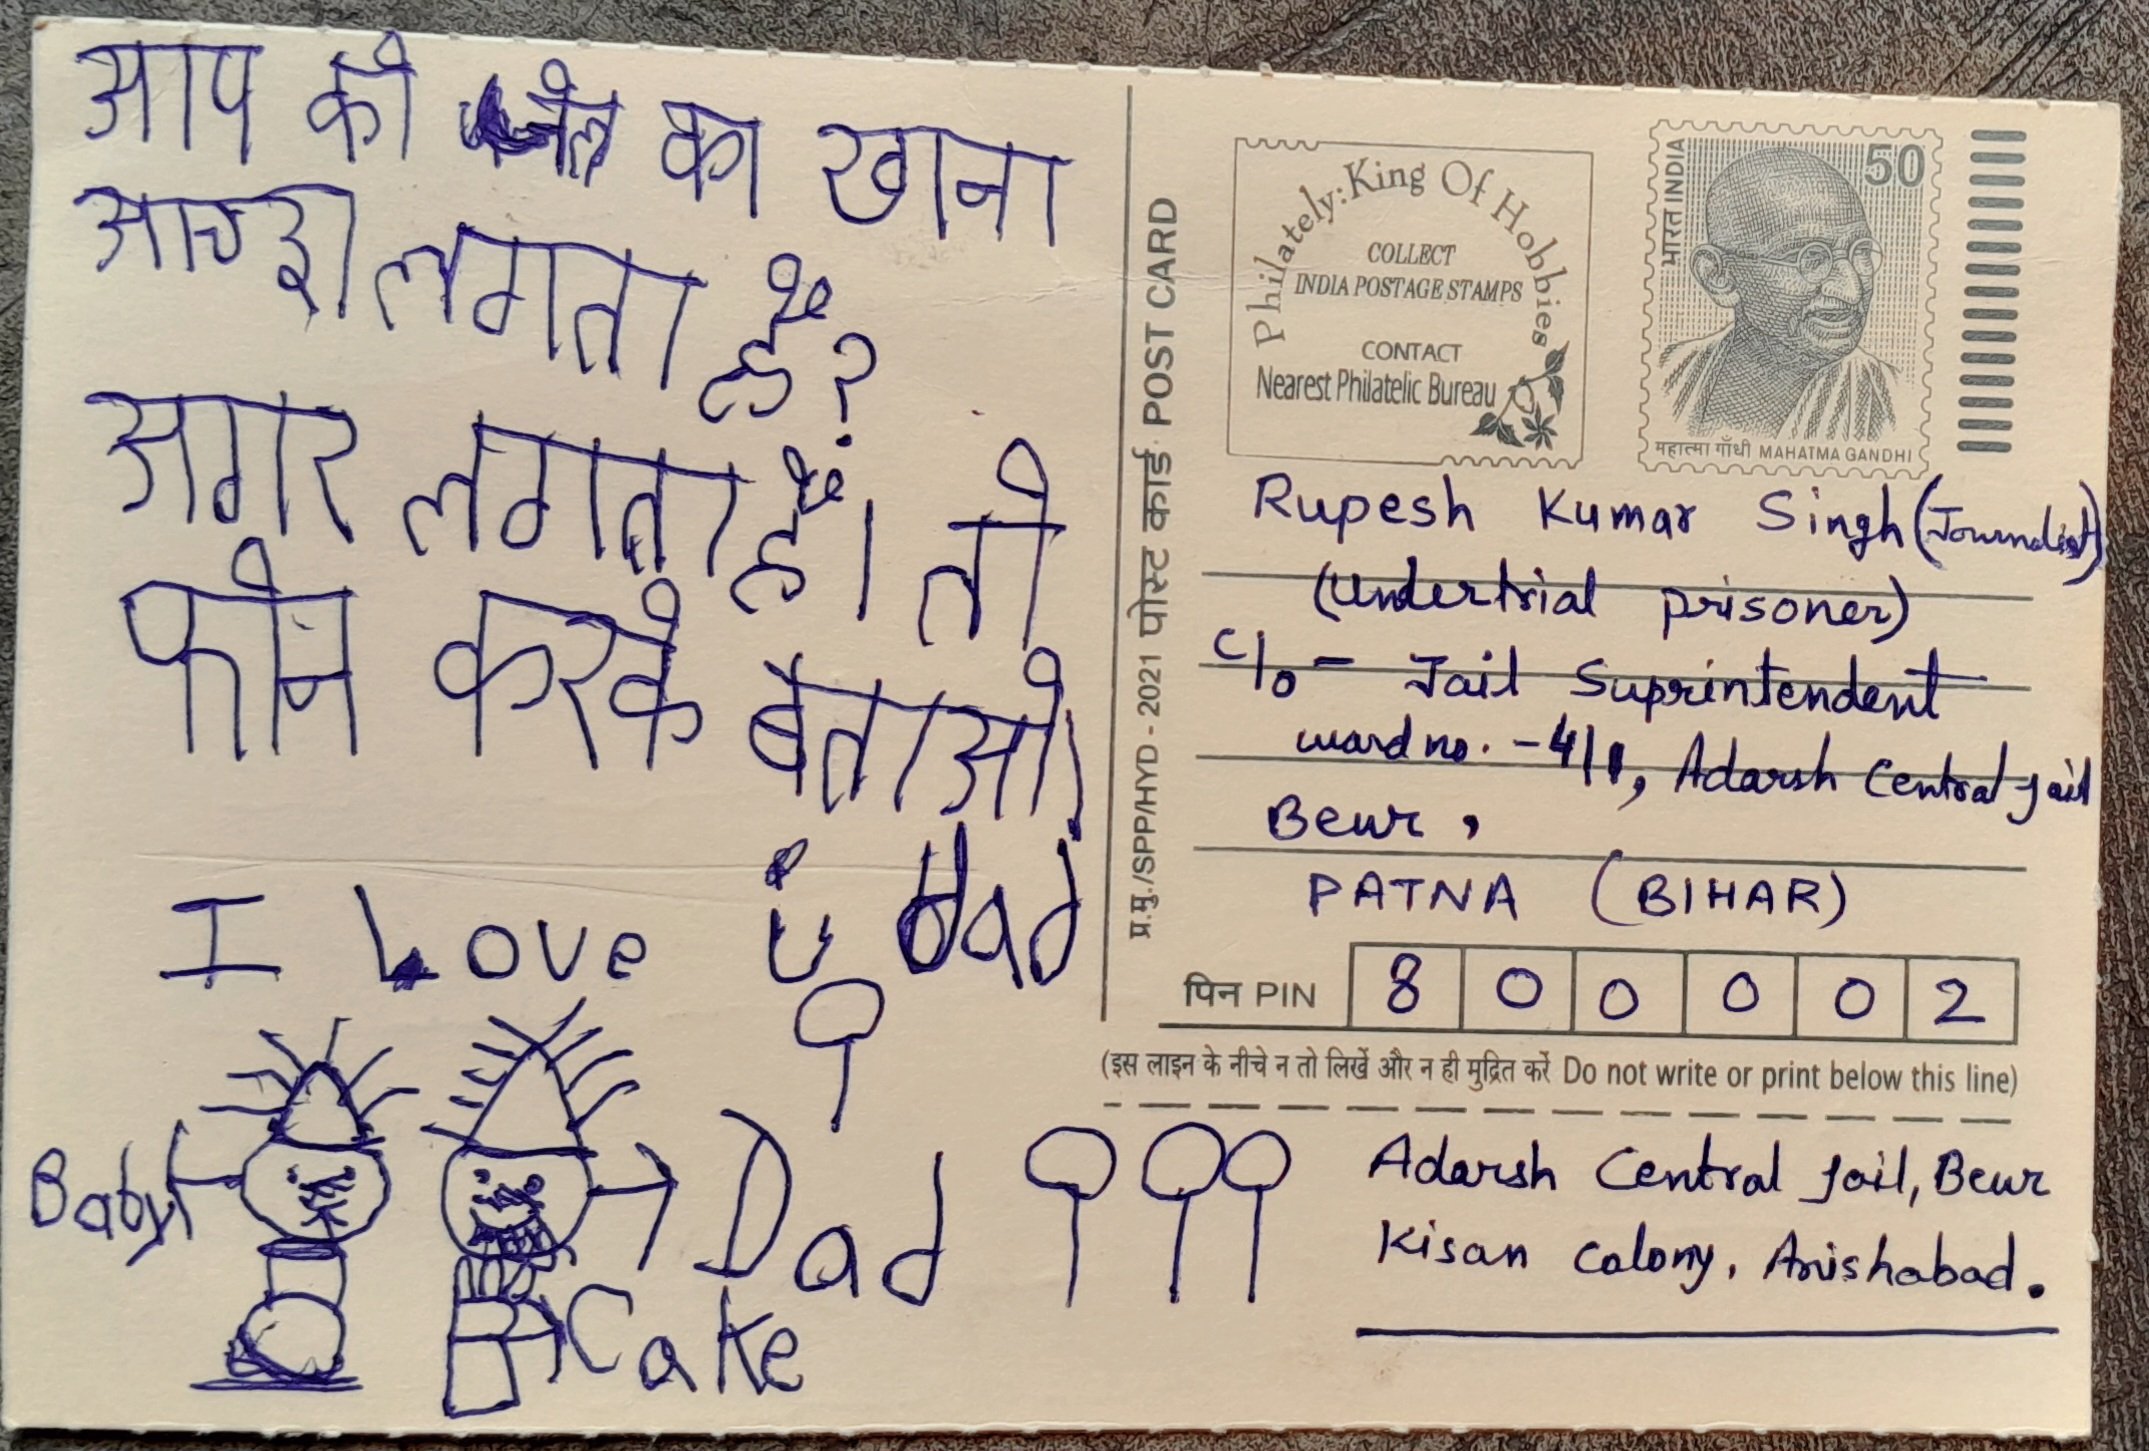 आप को जेल का खाना
आच्छा लगता है?
अगर लगता है। तो
फोन करके बैताओ।
I Love u dad
Baby
Dad
Cake
प्र.मु./SPP/HYD - 2021 पोस्ट कार्ड POST CARD
Philately: King Of Hobbies
COLLECT
INDIA POSTAGE STAMPS
CONTACT
Nearest Philatelic Bureau
भारत INDIA
50
महात्मा गाँधी MAHATMA GANDHI
Rupesh Kumar Singh (Journalist)
(Undertrial prisoner)
C/o - Jail Suprintendent
ward no. - 4/1, Adarsh Central jail
Beur,
PATNA (BIHAR)
पिन PIN 8 0 0 0 0 2
(इस लाइन के नीचे न तो लिखें और न ही मुद्रित करें Do not write or print below this line)
Adarsh Central jail, Beur
Kisan colony, Anishabad.